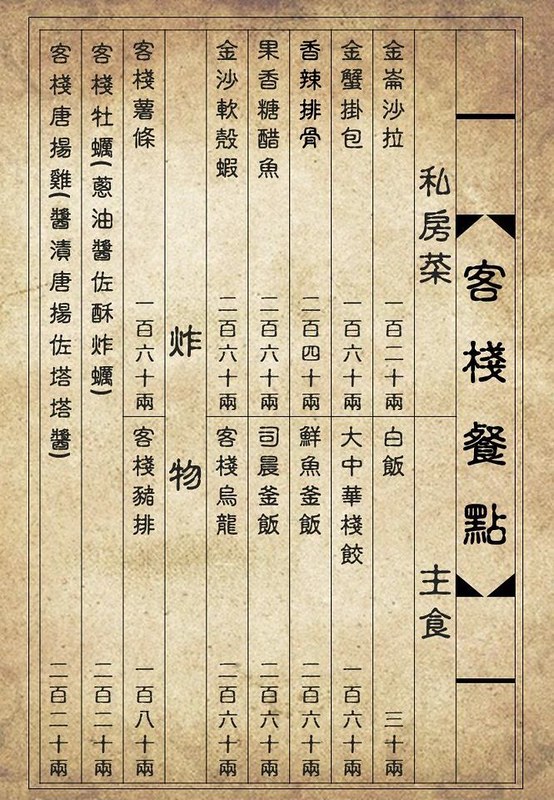 客棧餐點
私房菜
金崙沙拉 一百二十兩
金蟹掛包 一百六十兩
香辣排骨 二百四十兩
果香糖醋魚 二百六十兩
金沙軟殼蝦 二百六十兩
主食
白飯 三十兩
大中華棧餃 一百六十兩
鮮魚釜飯 二百六十兩
司晨釜飯 二百六十兩
客棧烏龍 二百六十兩
炸物
客棧薯條 一百六十兩
客棧豬排 一百八十兩
客棧牡蠣(蔥油醬佐酥炸蠣) 二百二十兩
客棧唐揚雞(醬漬唐揚佐塔塔醬) 二百二十兩